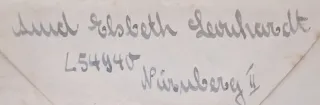 Elsbeth Leonhardt
L54940
Nürnberg II